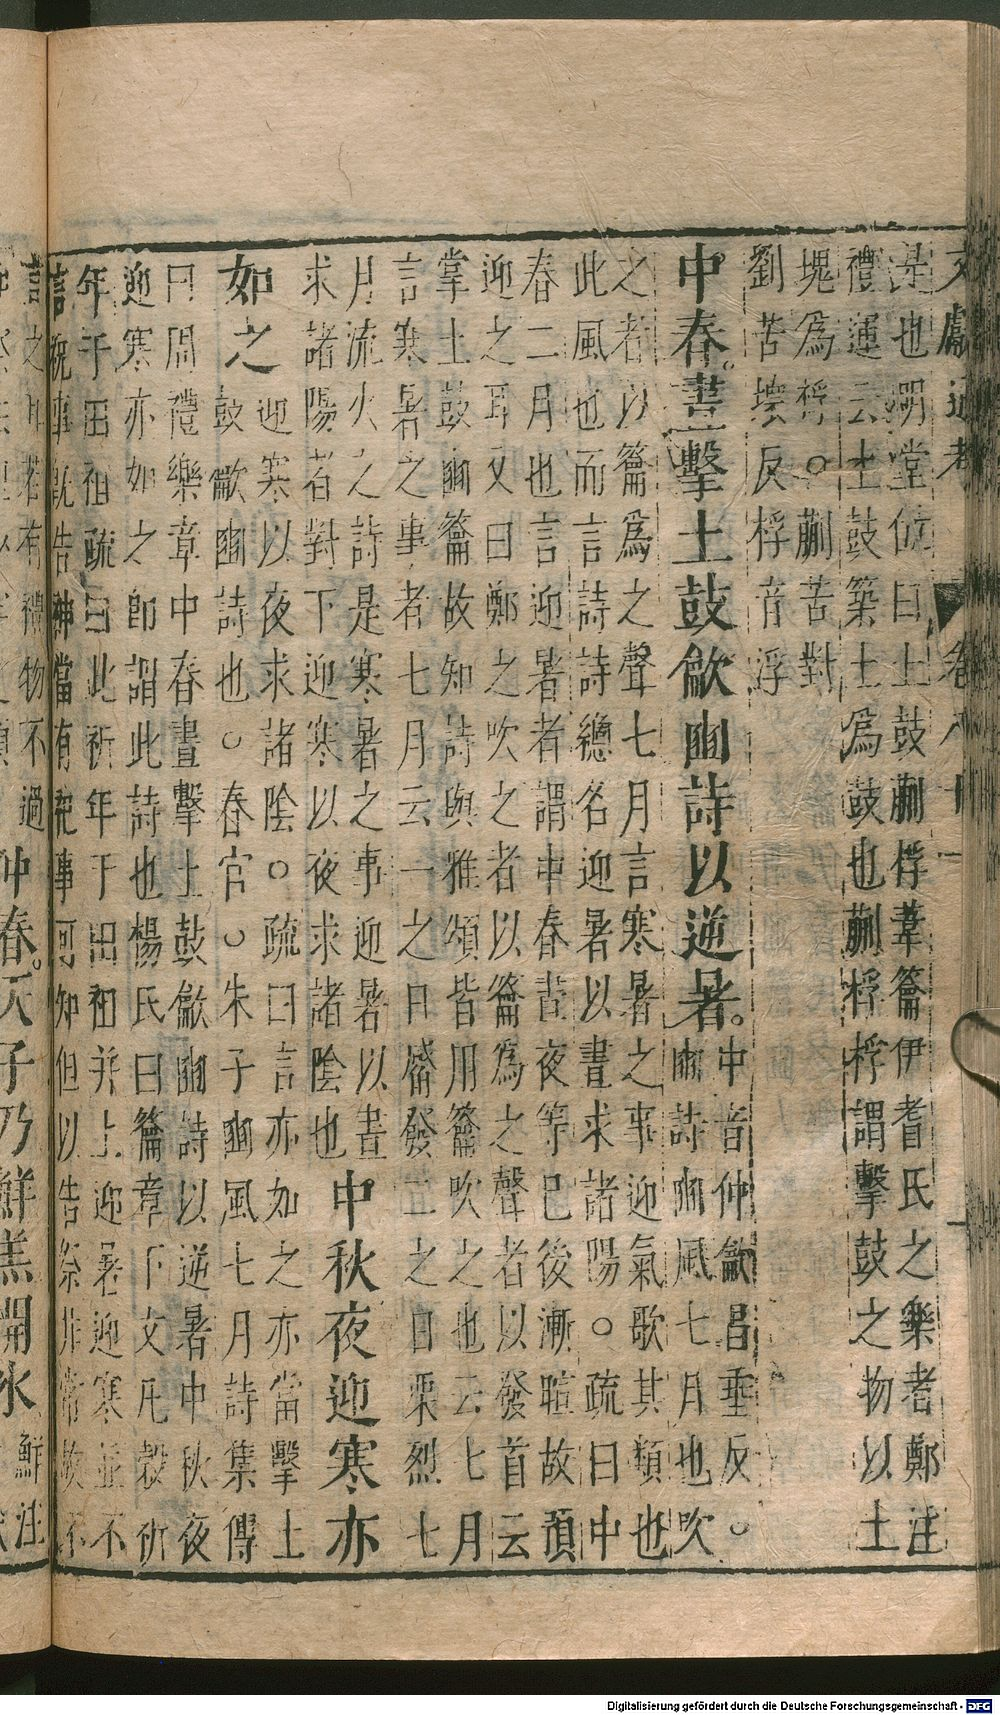 文獻通考 卷八十一
是也明堂位曰土鼓蒯桴葦籥伊耆氏之樂者鄭注
禮運云土鼓築土爲鼓也蒯桴桴謂擊鼓之物以土
塊爲桴○蒯苦對
劉苦壊反桴音浮
中春。晝擊土鼓龡豳詩以逆暑。中音仲龡昌垂反○
豳詩豳風七月也吹
之者以籥爲之聲七月言寒暑之事迎氣歌其類也
此風也而言詩詩總名迎暑以晝求諸陽○疏曰中
春二月也言迎暑者謂中春晝夜等已後漸暄故預
迎之耳又曰鄭之吹之者以籥爲之聲者以發首云
掌土鼓豳籥故知詩與雅頌皆用籥吹之也云七月
言寒暑之事者七月云一之日觱發二之日栗烈七
月流火之詩是寒暑之事迎暑以晝
求諸陽者對下迎寒以夜求諸陰也
中秋夜迎寒亦
如之
迎寒以夜求諸陰○疏曰言亦如之亦當擊土
鼓龡豳詩也○春官○朱子豳風七月詩集傳
曰周禮樂章中春晝擊土鼓龡豳詩以逆暑中秋夜
迎寒亦如之即謂此詩也楊氏曰籥章下文凡穀祈
年于田祖疏曰此祈年于田祖并上迎暑迎寒並不
言祝事既告神當有祝事可知但以告祭非常故不
言之耳若有禮物不過
仲春。天子乃鮮羔開冰
鮮注
Digitalisierung gefördert durch die Deutsche Forschungsgemeinschaft - DFG